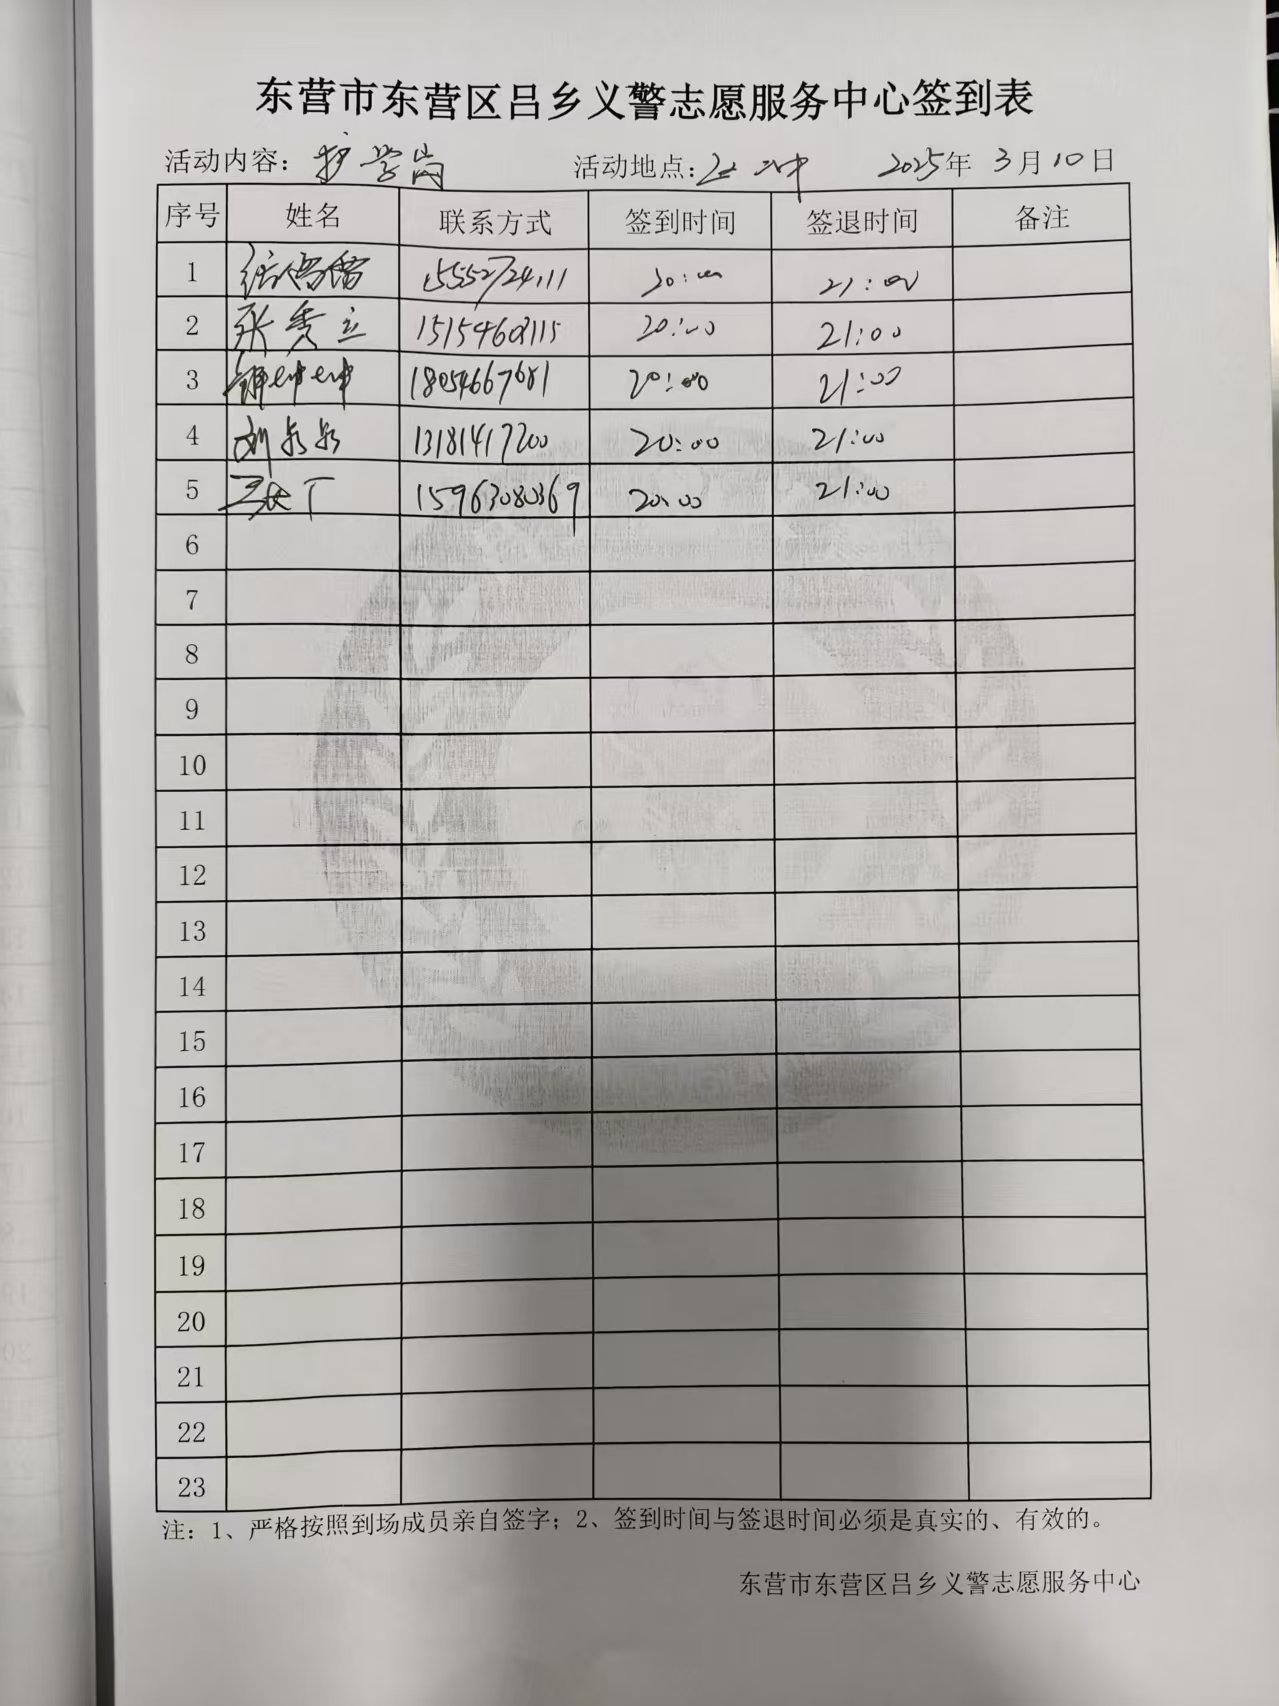 东营市东营区吕乡义警志愿服务中心签到表
活动内容：护学岗 活动地点： 2025年 3月10日
序号 姓名 联系方式 签到时间 签退时间 备注
1 15552724111 20:00 21:00
2 张秀立 15154608115 20:00 21:00
3 18054667681 20:00 21:00
4 刘泉泉 13181417200 20:00 21:00
5 15963080369 20:00 21:00
6
7
8
9
10
11
12
13
14
15
16
17
18
19
20
21
22
23
注：1、严格按照到场成员亲自签字；2、签到时间与签退时间必须是真实的、有效的。
东营市东营区吕乡义警志愿服务中心